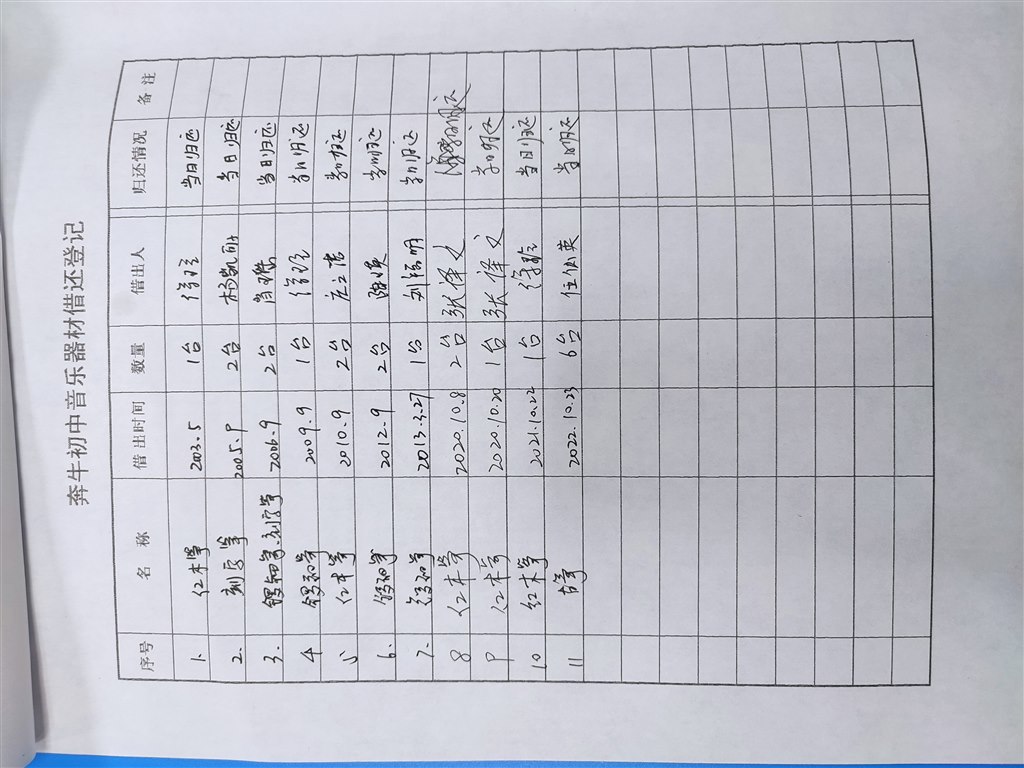 奔牛初中音乐器材借还登记
序号 名 称 借出时间 数量 借出人 归还情况 备注
1. 红木筝 2003.5 1台 徐玲 当日归还
2. 刻字筝 2005.9 2台 杨凯丽 当日归还
3. 刻字筝 2006.9 2台 当日归还
4 筝 2009.9 1台 徐玲 当日归还
5 红木筝 2010.9 2台 当日归还
6. 筝 2012.9 2台 当日归还
7. 筝 2013.3.27 1台 当日归还
8 红木筝 2020.10.8 2台 张译文 当日归还
9 红木筝 2020.10.20 1台 张译文 当日归还
10 红木筝 2021.10.22 1台 徐玲 当日归还
11 古筝 2022.10.23 6台 任仙英 当日归还